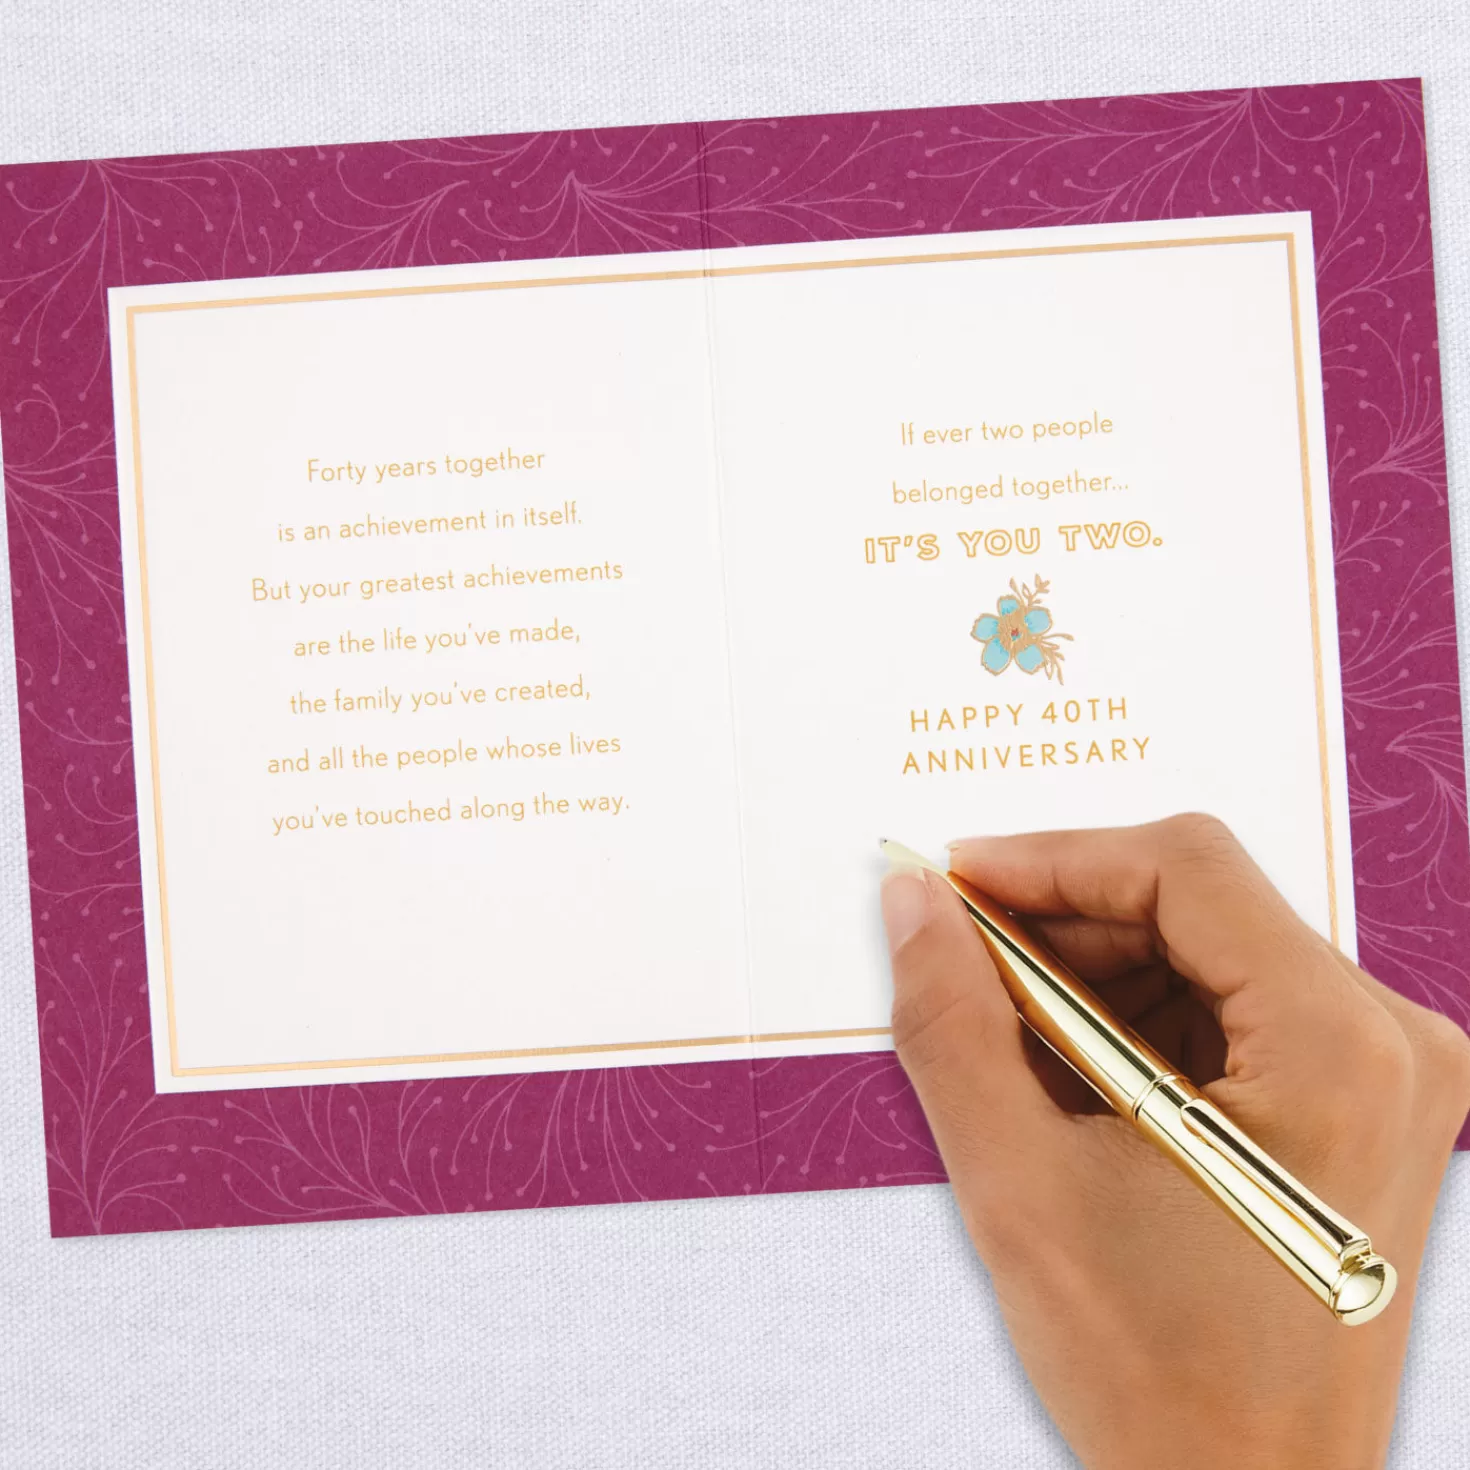 Forty years together
is an achievement in itself.
But your greatest achievements
are the life you've made,
the family you've created,
and all the people whose lives
you've touched along the way.
If ever two people
belonged together...
IT'S YOU TWO.
HAPPY 40TH
ANNIVERSARY